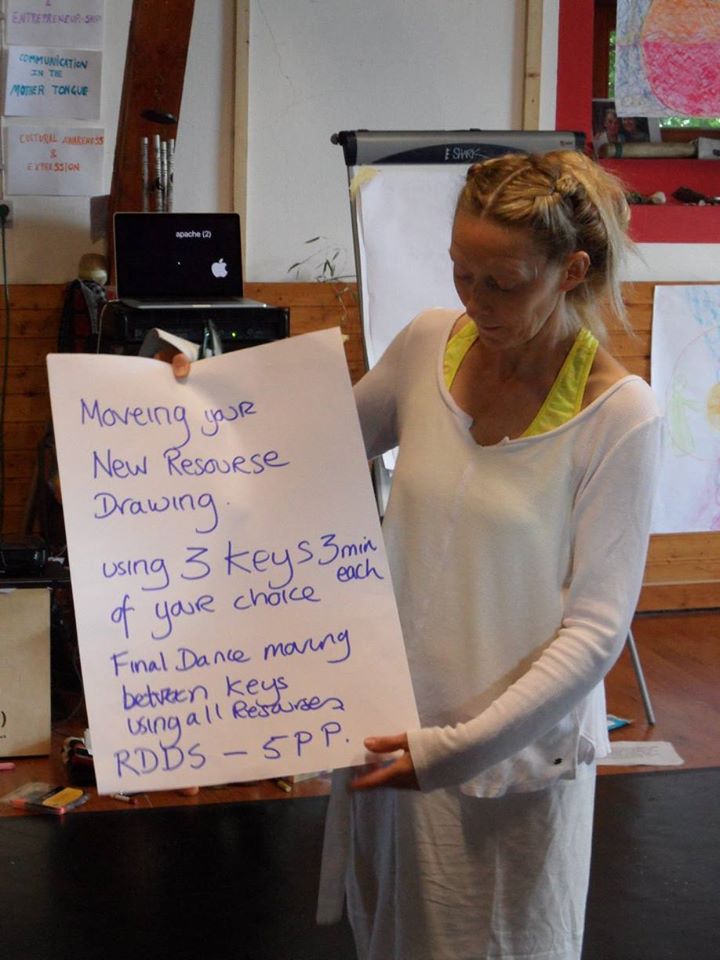 & ENTREPRENEURSHIP
COMMUNICATION
IN THE
MOTHER TONGUE
CULTURAL AWARENESS
&
EXPRESSION
apache (2)
Moveing your
New Resourse
Drawing.
using 3 keys 3min
each
of your choice
Final Dance moving
between keys
using all Resourses
RDDS – 5PP.